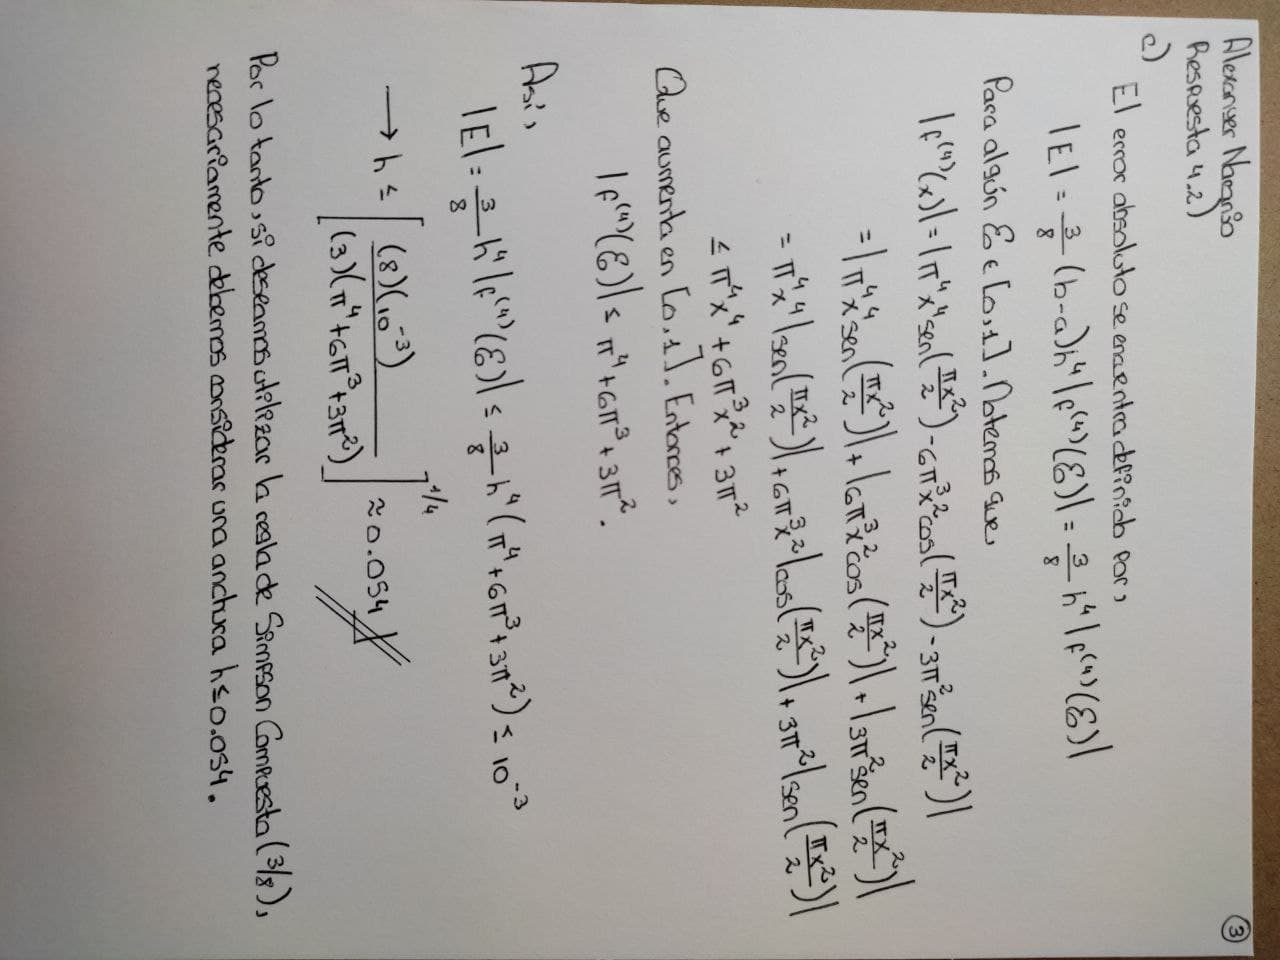 ③
Alexanyer Naranjo
Respuesta 4.2)
c)
El error absoluto se encuentra definido por,
|E| = 3/8 (b-a)h⁴|f⁽⁴⁾(ξ)| = 3/8 h⁴|f⁽⁴⁾(ξ)|
Para algún ξ ∈ [0,1]. Notemos que,
|f⁽⁴⁾(x)| = |π⁴x⁴sen(πx²/2) - 6π³x²cos(πx²/2) - 3π²sen(πx²/2)|
= |π⁴x⁴sen(πx²/2)| + |6π³x²cos(πx²/2)| + |3π²sen(πx²/2)|
= π⁴x⁴|sen(πx²/2)| + 6π³x²|cos(πx²/2)| + 3π²|sen(πx²/2)|
≤ π⁴x⁴ + 6π³x² + 3π²
Que aumenta en [0,1]. Entonces,
|f⁽⁴⁾(ξ)| ≤ π⁴ + 6π³ + 3π².
Así,
|E| = 3/8 h⁴|f⁽⁴⁾(ξ)| ≤ 3/8 h⁴(π⁴ + 6π³ + 3π²) ≤ 10⁻³
→ h ≤ [(8)(10⁻³)/(3)(π⁴ + 6π³ + 3π²)]^1/4 ≈ 0.054
Por lo tanto, si deseamos utilizar la regla de Simpson Compuesta (3/8),
necesariamente debemos considerar una anchura h ≤ 0.054.